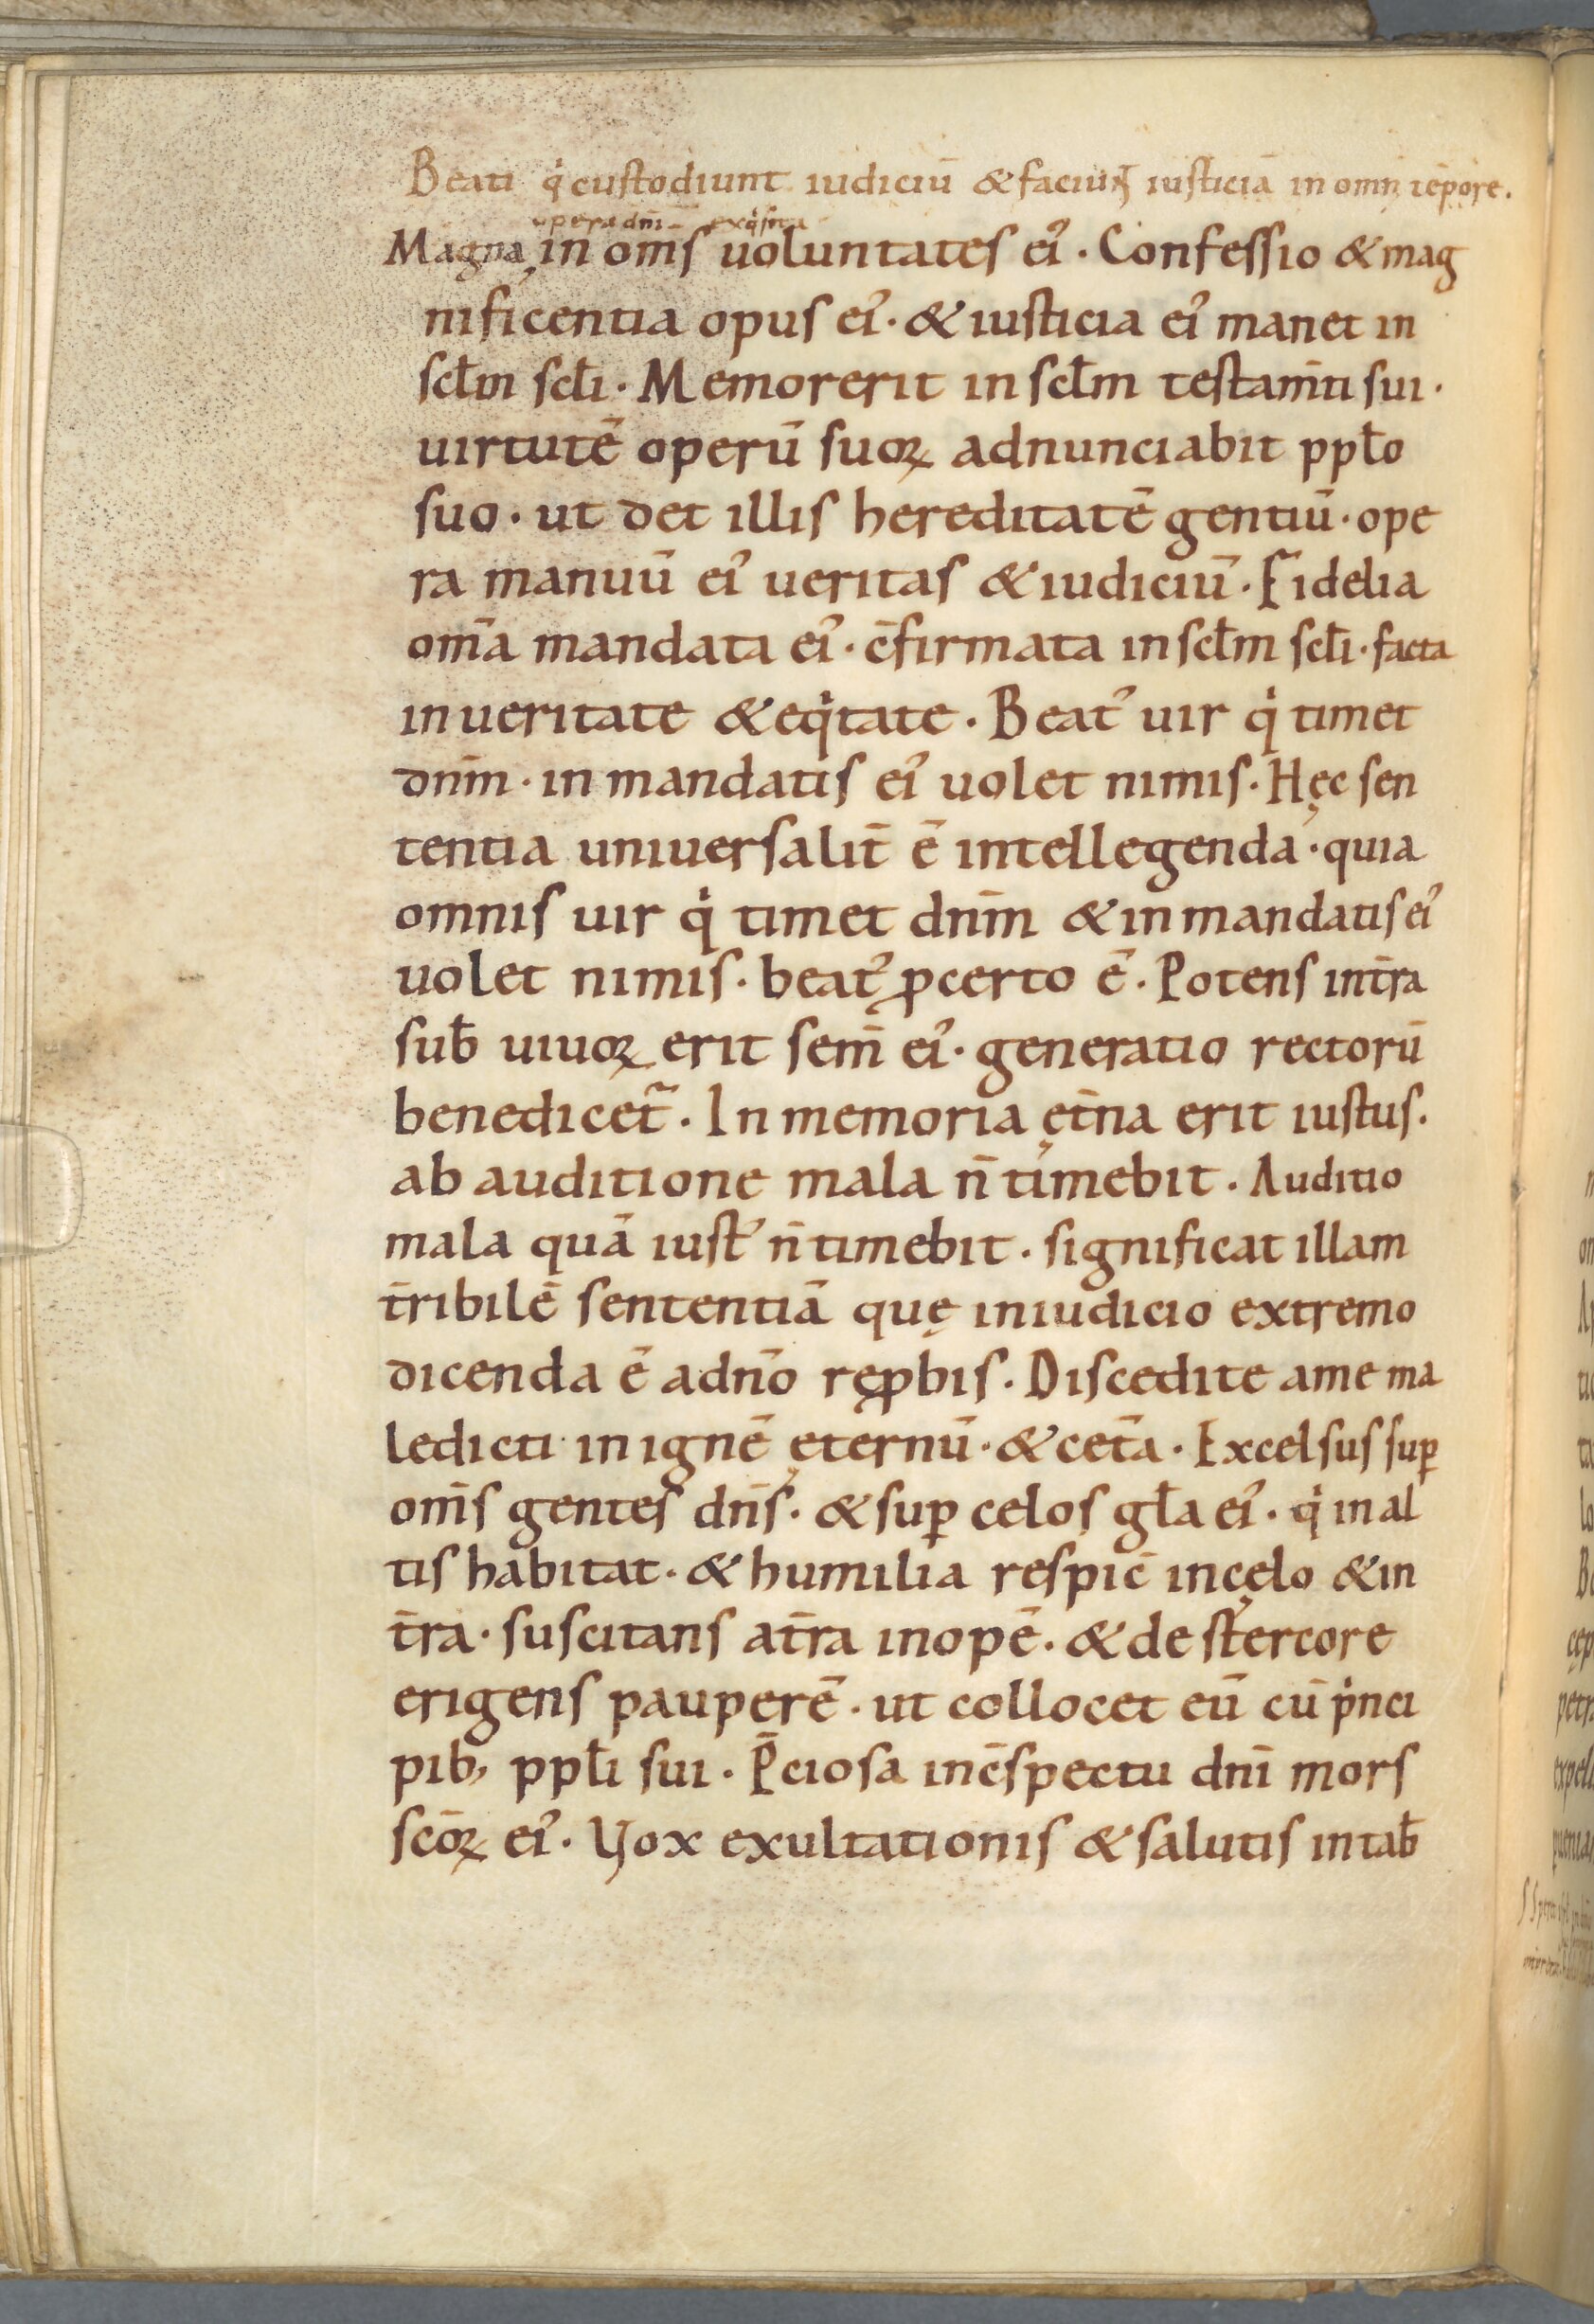 Beati q̇ custodiunt iudiciū & faciunt iusticiā in omni tēpore.
opera dn̄i exq̇sita
Magna, in om̄s uoluntates ei᾽. Confessio & mag
nificentia opus ei᾽. & iusticia ei᾽ manet in
scl̄m scl̄i. Memorerit in scl̄m testam̄ti sui.
uirtutē operū suoꝝ adnunciabit ppl̄o
suo. ut det illis hereditatē gentiū. ope
ra manuū ei᾽ ueritas & iudiciū. Fidelia
om̄a mandata ei᾽. c̄firmata in scl̄m scl̄i. facta
in ueritate & eq̇tate. Beat᾽ uir q̇ timet
dnm̄. in mandatis ei᾽ uolet nimis. Hęc sen
tentia uniuersalit̄ ē intellegenda. quia
omnis uir q̇ timet dnm̄ & in mandatis ei᾽
uolet nimis. beat᾽ ꝓcerto ē. Potens int̄ra
sub̄ uiuoꝝ erit sem̄ ei᾽. generatio rectorū
benedicet̃. In memoria ęt̄na erit iustus.
ab auditione mala n̄ timebit. Auditio
mala quā iust᾽ n̄ timebit. significat illam
t̄ribilē sententiā quę in iudicio extremo
dicenda ē adn̄o ręꝓbis. Discedite ame ma
ledicti in ignē ęternū. & cet̄a. Excelsus suꝑ
om̄s gentes dn̄s. & suꝑ celos gl̄a ei᾽. q̇ in al
tis habitat. & humilia respic̄ in cęlo & in
t̄ra. suscitans at̄ra inopē. & de stercore
erigens pauperē. ut collocet eū cū pi̇nci
pib; ppl̄i sui. P̄ciosa in c̄spectu dn̄i mors
sc̄oꝝ ei᾽. Vox exultationis & salutis in tab̄